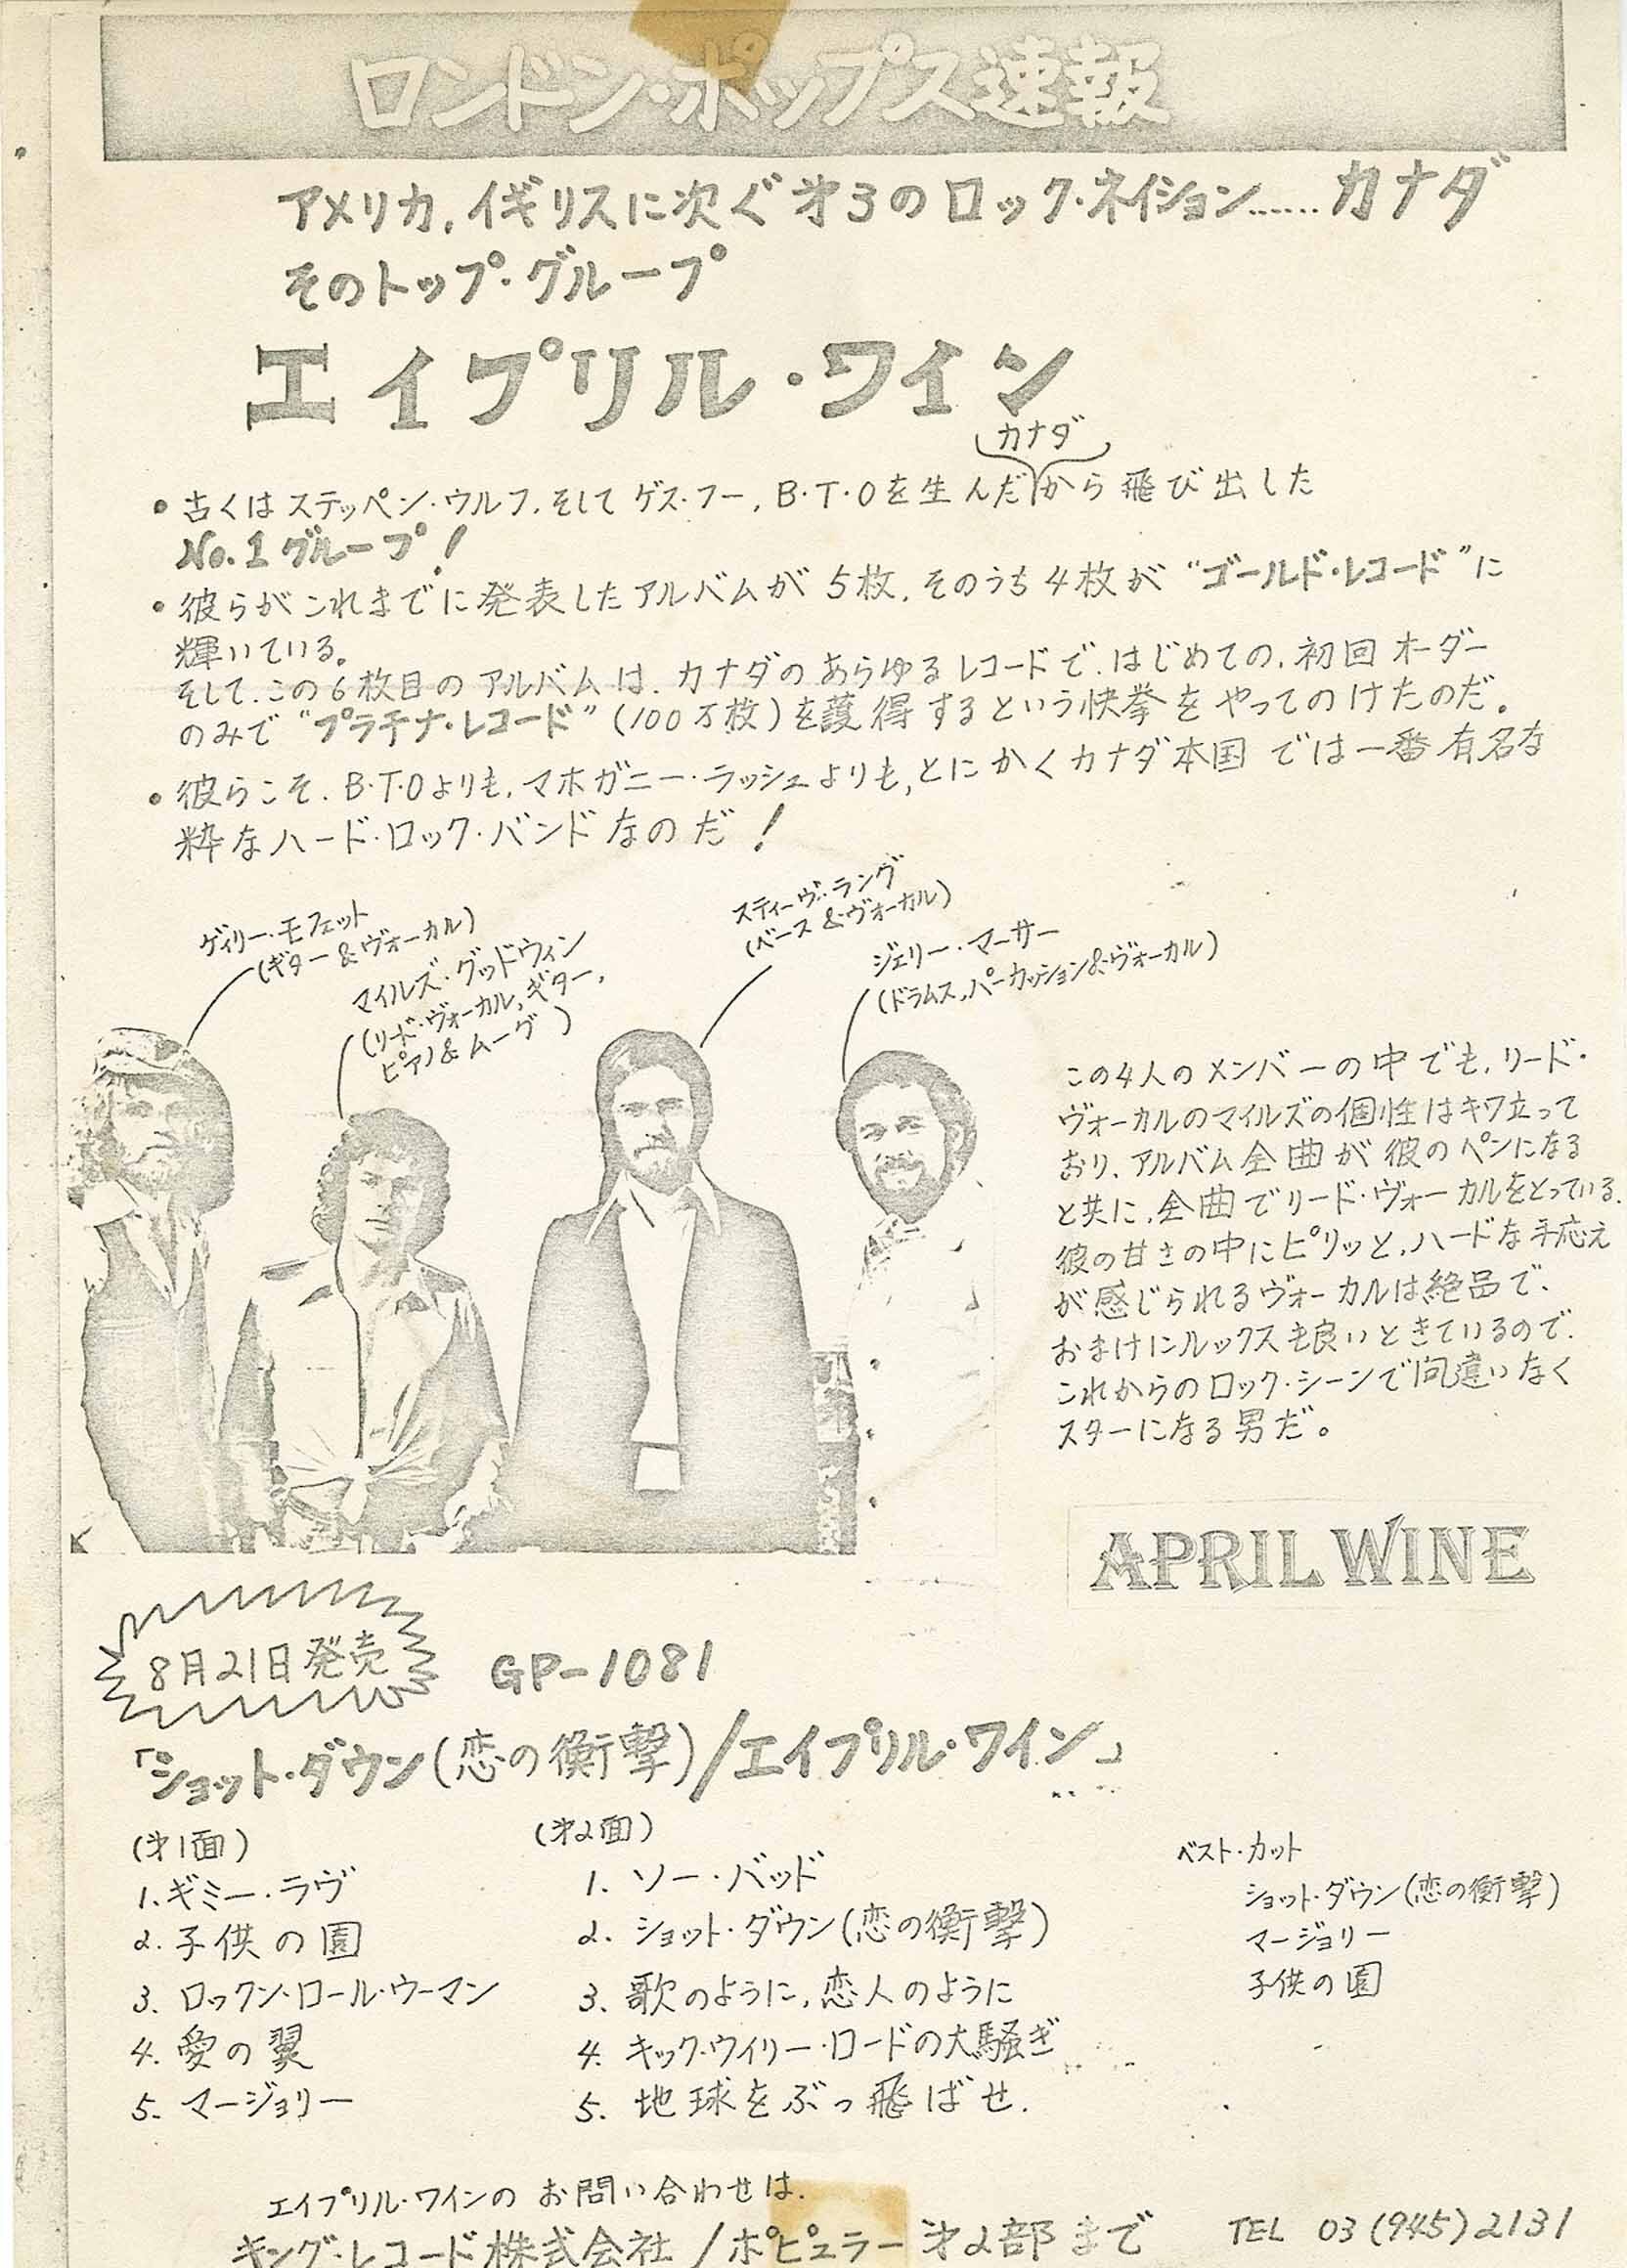 ロンドン・ポップス速報
アメリカ,イギリスに次ぐ才3のロック・ネイション……カナダ
そのトップ・グループ
エイプリル・ワイン
カナダ
・古くはステッペン・ウルフ,そしてゲス・フー,B・T・Oを生んだから飛び出した
No.1グループ!
・彼らがこれまでに発表したアルバムが5枚,そのうち4枚が“ゴールド・レコード”に
輝いている。
そして,この6枚目のアルバムは,カナダのあらゆるレコードで,はじめての,初回オーダー
のみで“プラチナ・レコード”(100万枚)を獲得するという快挙をやってのけたのだ。
・彼らこそ,B・T・Oよりも,マホガニー・ラッシュよりも,とにかくカナダ本国では一番有名な
粋なハード・ロック・バンドなのだ!
ゲィリー・モフェット
(ギター&ヴォーカル)
マイルズ・グッドウィン
(リード・ヴォーカル,ギター,
ピアノ&ムーグ)
スティーヴ・ラング
(ベース&ヴォーカル)
ジェリー・マーサー
(ドラムス,パーカッション&ヴォーカル)
この4人のメンバーの中でも,リード・
ヴォーカルのマイルズの個性はキワ立って
おり,アルバム全曲が彼のペンになる
と共に,全曲でリード・ヴォーカルをとっている.
彼の甘さの中にピリッと,ハードな手応え
が感じられるヴォーカルは絶品で,
おまけにルックスも良いときているので,
これからのロック・シーンで間違いなく
スターになる男だ。
APRIL WINE
8月21日発売
GP-1081
「ショット・ダウン(恋の衝撃)/エイプリル・ワイン」
(才1面)
1.ギミー・ラヴ
2.子供の園
3.ロックン・ロール・ウーマン
4.愛の翼
5.マージョリー
(才2面)
1.ソー・バッド
2.ショット・ダウン(恋の衝撃)
3.歌のように,恋人のように
4.キック・ウイリー・ロードの大騒ぎ
5.地球をぶっ飛ばせ.
ベスト・カット
ショット・ダウン(恋の衝撃)
マージョリー
子供の園
エイプリル・ワインのお問い合わせは,
キング・レコード株式会社/ポピュラー才2部まで TEL 03(945)2131